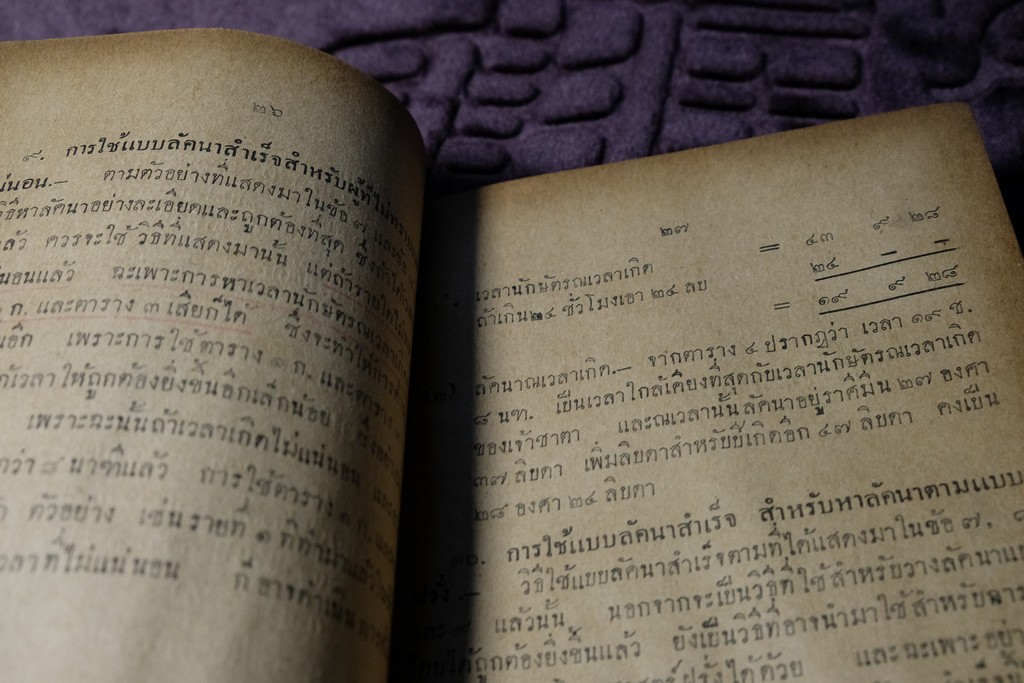 ๒๖
๙. การใช้แบบลัคนาสำเร็จสำหรับผู้ที่ไม่ทราบ
แน่นอน.— ตามตัวอย่างที่แสดงมาในข้อ ๗ และ
วิธีหาลัคนาอย่างละเอียดและถูกต้องที่สุด ซึ่งถ้าได้
แล้ว ควรจะใช้วิธีที่แสดงมานั้น แต่ถ้ารายใดไม่
แน่นอนแล้ว ฉะเพาะการหาเวลานักษัตร
๑ ก. และตาราง ๓ เสียก็ได้ ซึ่งจะทำให้การ
เพราะการใช้ตาราง ๑ ก. และตาราง
เวลาให้ถูกต้องยิ่งขึ้นอีกเล็กน้อย ซึ่งอย่าง
เพราะฉะนั้นถ้าเวลาเกิดไม่แน่นอน
กว่า ๘ นาฑีแล้ว การใช้ตาราง ๑ ก.
ตัวอย่าง เช่นรายที่ ๑ ที่ทำมาแล้ว
เวลาที่ไม่แน่นอน ก็อาจดำเนินการ
๒๗
เวลานักษัตรณเวลาเกิด = ๔๓ ๙ ๒๘
ถ้าเกิน ๒๔ ชั่วโมงเอา ๒๔ ลบ ๒๔ – –
= ๑๙ ๙ ๒๘
ลัคนาณเวลาเกิด.— จากตาราง ๔ ปรากฏว่า เวลา ๑๙ ช.
๘ นฑ. เป็นเวลาใกล้เคียงที่สุดกับเวลานักษัตรณเวลาเกิด
ของเจ้าชาตา และณเวลานั้นลัคนาอยู่ราศีมีน ๒๗ องศา
๓๗ ลิบดา เพิ่มลิบดาสำหรับปีเกิดอีก ๔๗ ลิบดา คงเป็น
๒๘ องศา ๒๔ ลิบดา
๑๐. การใช้แบบลัคนาสำเร็จ สำหรับหาลัคนาตามแบบ
ฝรั่ง.— วิธีใช้แบบลัคนาสำเร็จตามที่ได้แสดงมาในข้อ ๗, ๘
และ ๙ แล้วนั้น นอกจากจะเป็นวิธีที่ใช้สำหรับวางลัคนา
โดยได้ถูกต้องยิ่งขึ้นแล้ว ยังเป็นวิธีที่อาจนำมาใช้สำหรับ
ฝรั่งได้ด้วย และฉะเพาะ